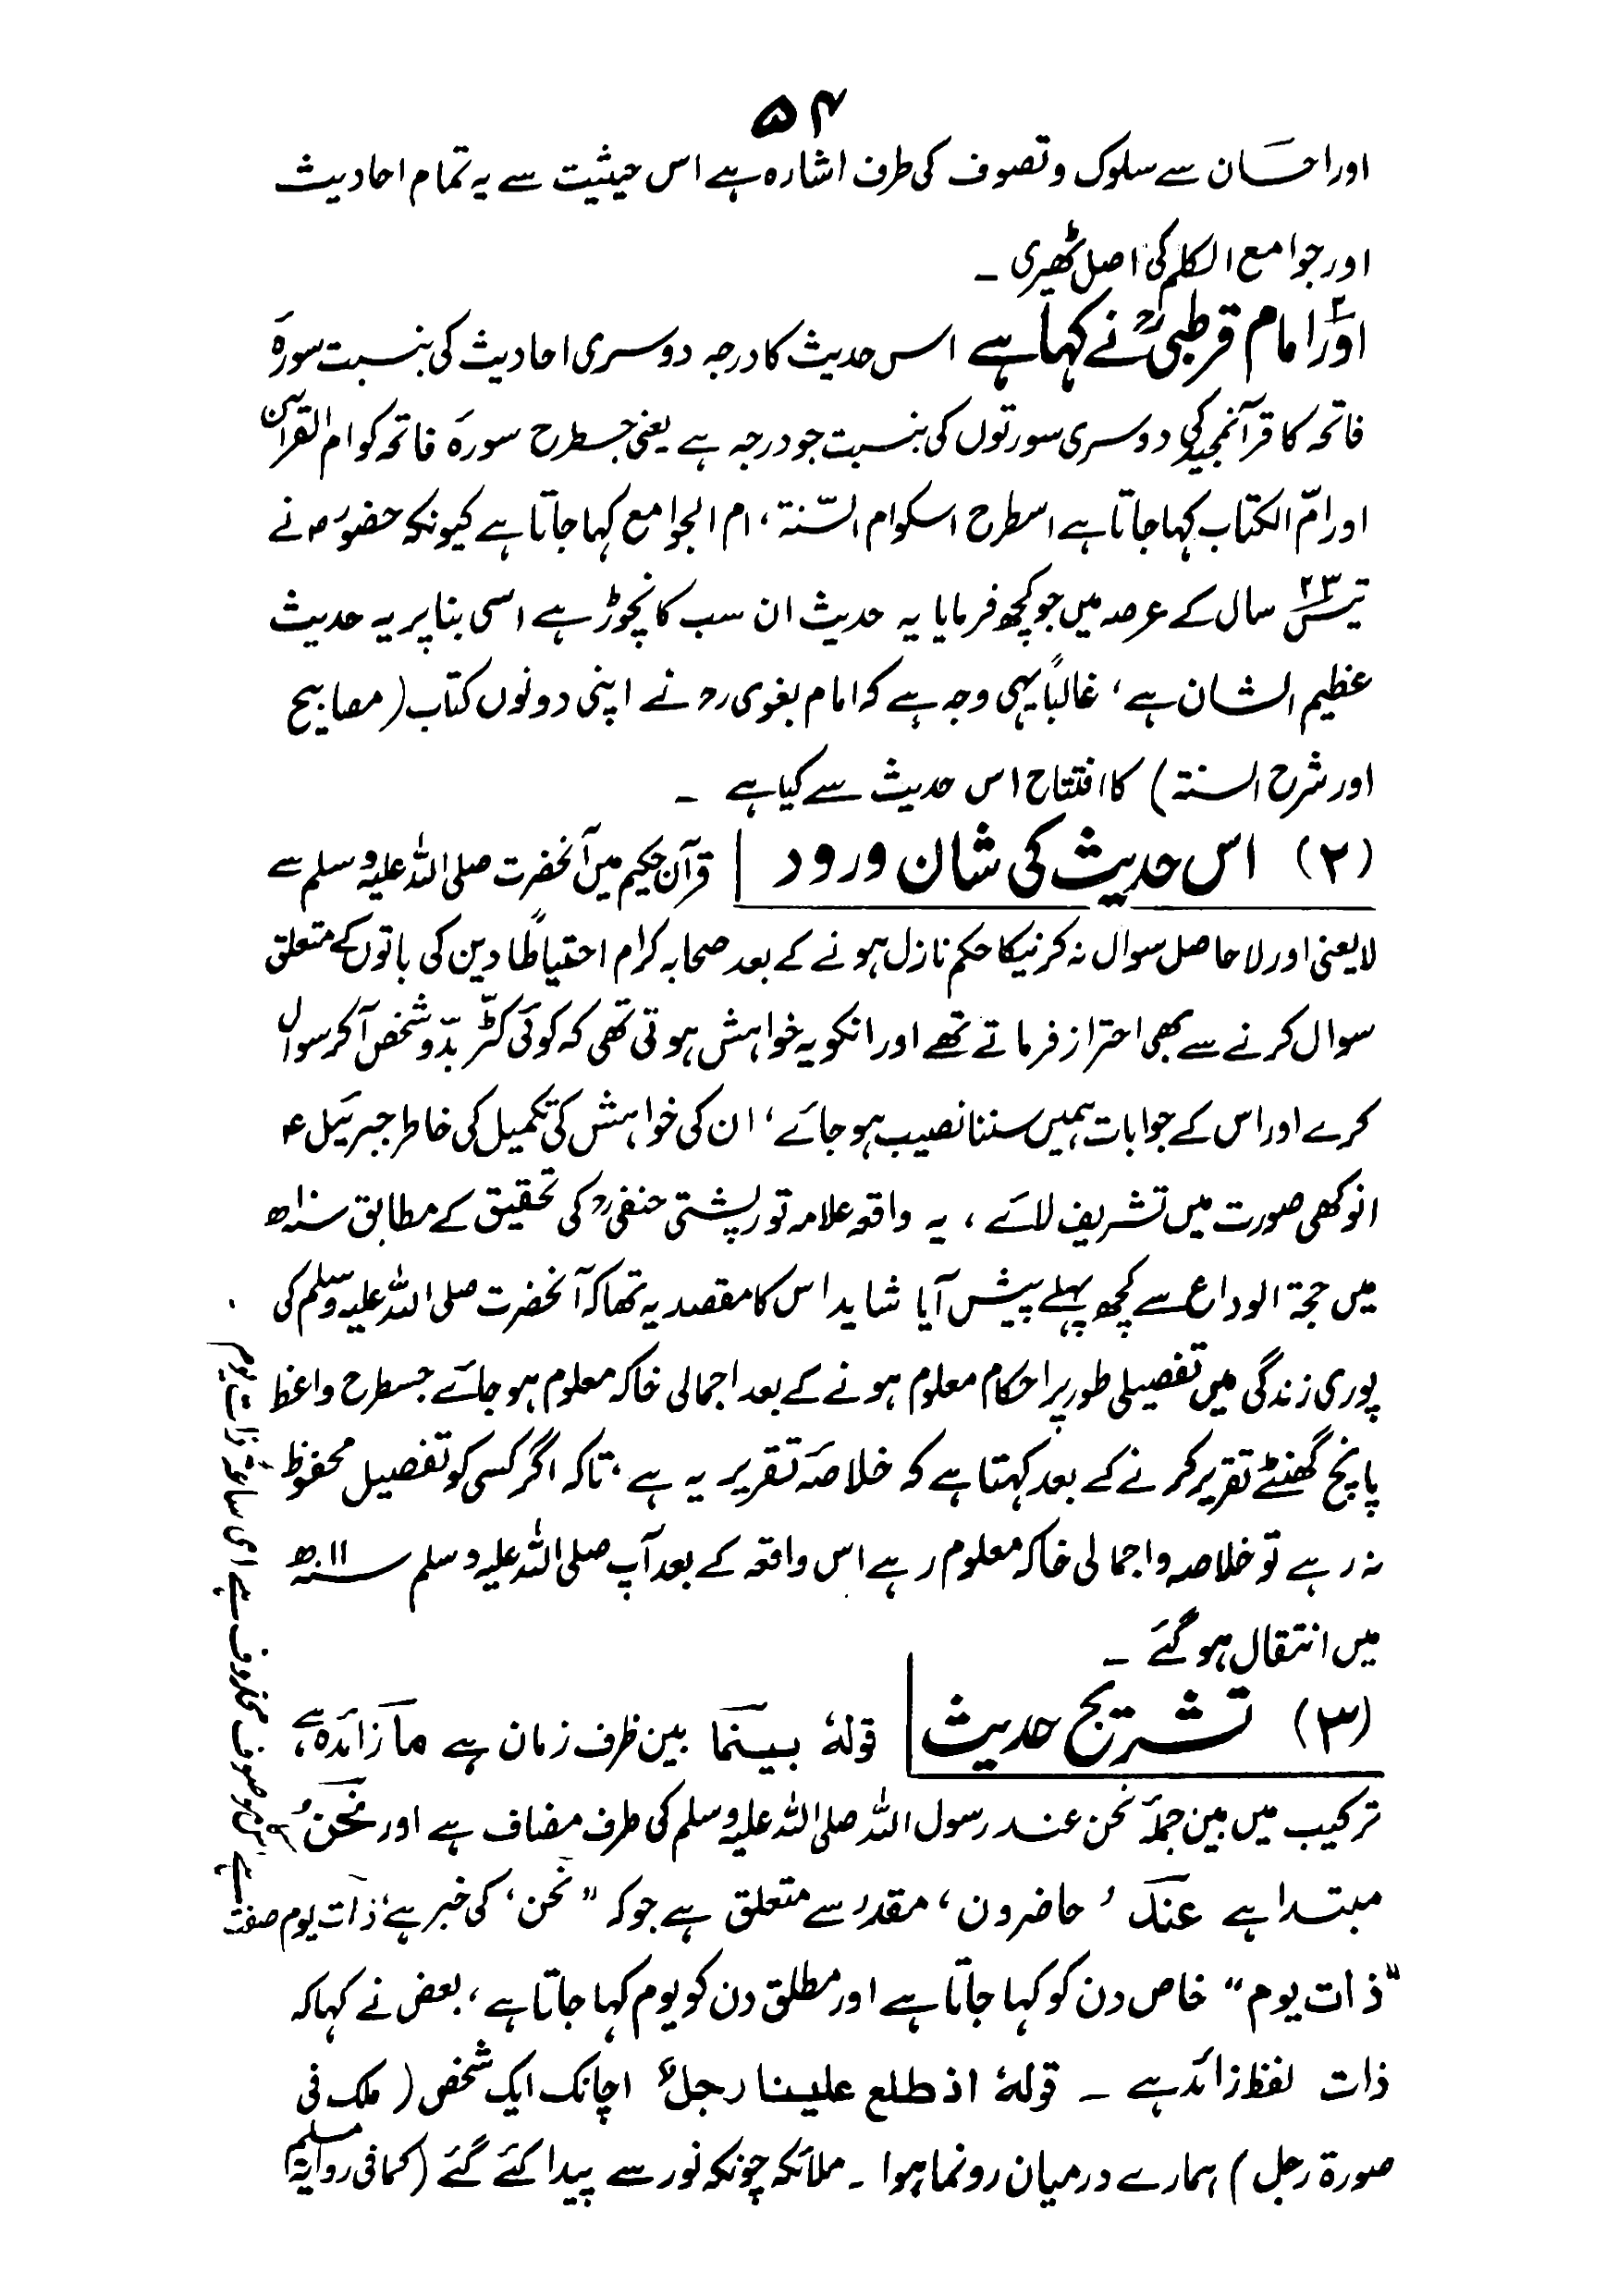 ۵۴
اور احسان سے سلوک و تصوف کی طرف اشارہ ہے اس حیثیت سے یہ تمام احادیث
اور جوامع الکلم کی اصل ٹھیری ۔
اور امام قرطبیؒ نے کہا ہے اس حدیث کا درجہ دوسری احادیث کی بنسبت سورۂ
فاتحہ کا قرآنمجید کی دوسری سورتوں کی بنسبت جو درجہ ہے یعنی جسطرح سورۂ فاتحہ کو ام القرآن
اور امّ الکتاب کہا جاتا ہے اسطرح اسکو ام السّنۃ، ام الجوامع کہا جاتا ہے کیونکہ حضورؐ نے
تیئس ۲۳ سال کے عرصہ میں جو کچھ فرمایا یہ حدیث ان سب کا نچوڑ ہے اسی بنا پر یہ حدیث
عظیم الشان ہے، غالباً یہی وجہ ہے کہ امام بغوی رح نے اپنی دونوں کتاب (مصابیح
اور شرح السنۃ) کا افتتاح اس حدیث سے کیا ہے ۔
(۲) اس حدیث کی شان ورود | قرآن حکیم میں آنحضرت صلی اللہ علیہ وسلم سے
لا یعنی اور لا حاصل سوال نہ کرنیکا حکم نازل ہونے کے بعد صحابہ کرام احتیاطًا دین کی باتوں کے متعلق
سوال کرنے سے بھی احتراز فرماتے تھے اور انکو یہ خواہش ہوتی تھی کہ کوئی کٹّر بدّو شخص آکر سوال
کرے اور اس کے جوابات ہمیں سننا نصیب ہو جائے، ان کی خواہش کی تکمیل کی خاطر جبرئیل ؑ
انوکھی صورت میں تشریف لائے، یہ واقعہ علامہ تورپشتی حنفیؒ کی تحقیق کے مطابق سنہ ۱۰ھ
میں حجۃ الوداع سے کچھ پہلے پیش آیا شاید اس کا مقصد یہ تھا کہ آنحضرت صلی اللہ علیہ وسلم کی
پوری زندگی میں تفصیلی طور پر احکام معلوم ہونے کے بعد اجمالی خاکہ معلوم ہو جائے جسطرح واعظ
پانچ گھنٹے تقریر کرنے کے بعد کہتا ہے کہ خلاصۂ تقریر یہ ہے، تاکہ اگر کسی کو تفصیل محفوظ
نہ رہے تو خلاصہ و اجمالی خاکہ معلوم رہے اس واقعہ کے بعد آپ صلی اللہ علیہ وسلم سنہ ۱۱ھ
میں انتقال ہو گئے ۔
(۳) تشریح حدیث | قولہٗ بینما بین ظرف زمان ہے ما زائدہ ہے،
ترکیب میں بین جملۂ نحن عند رسول اللہ صلی اللہ علیہ وسلم کی طرف مضاف ہے اور نحنُ
مبتدا ہے عند ’حاضرون‘ مقدر سے متعلق ہے جو کہ ”نحن‘ کی خبر ہے، ذات یوم صفت
ہے موصوف محذوف ہے ای ساعۃ ذات یوم
”ذات یوم“ خاص دن کو کہا جاتا ہے اور مطلق دن کو یوم کہا جاتا ہے، بعض نے کہا کہ
ذات لفظ زائد ہے ۔ قولہٗ اذ طلع علینا رجلٌ اچانک ایک شخص (ملک فی
صورۃ رجل) ہمارے درمیان رونما ہوا ۔ ملائکہ چونکہ نور سے پیدا کئے گئے (کما فی روایۃ مسلم)